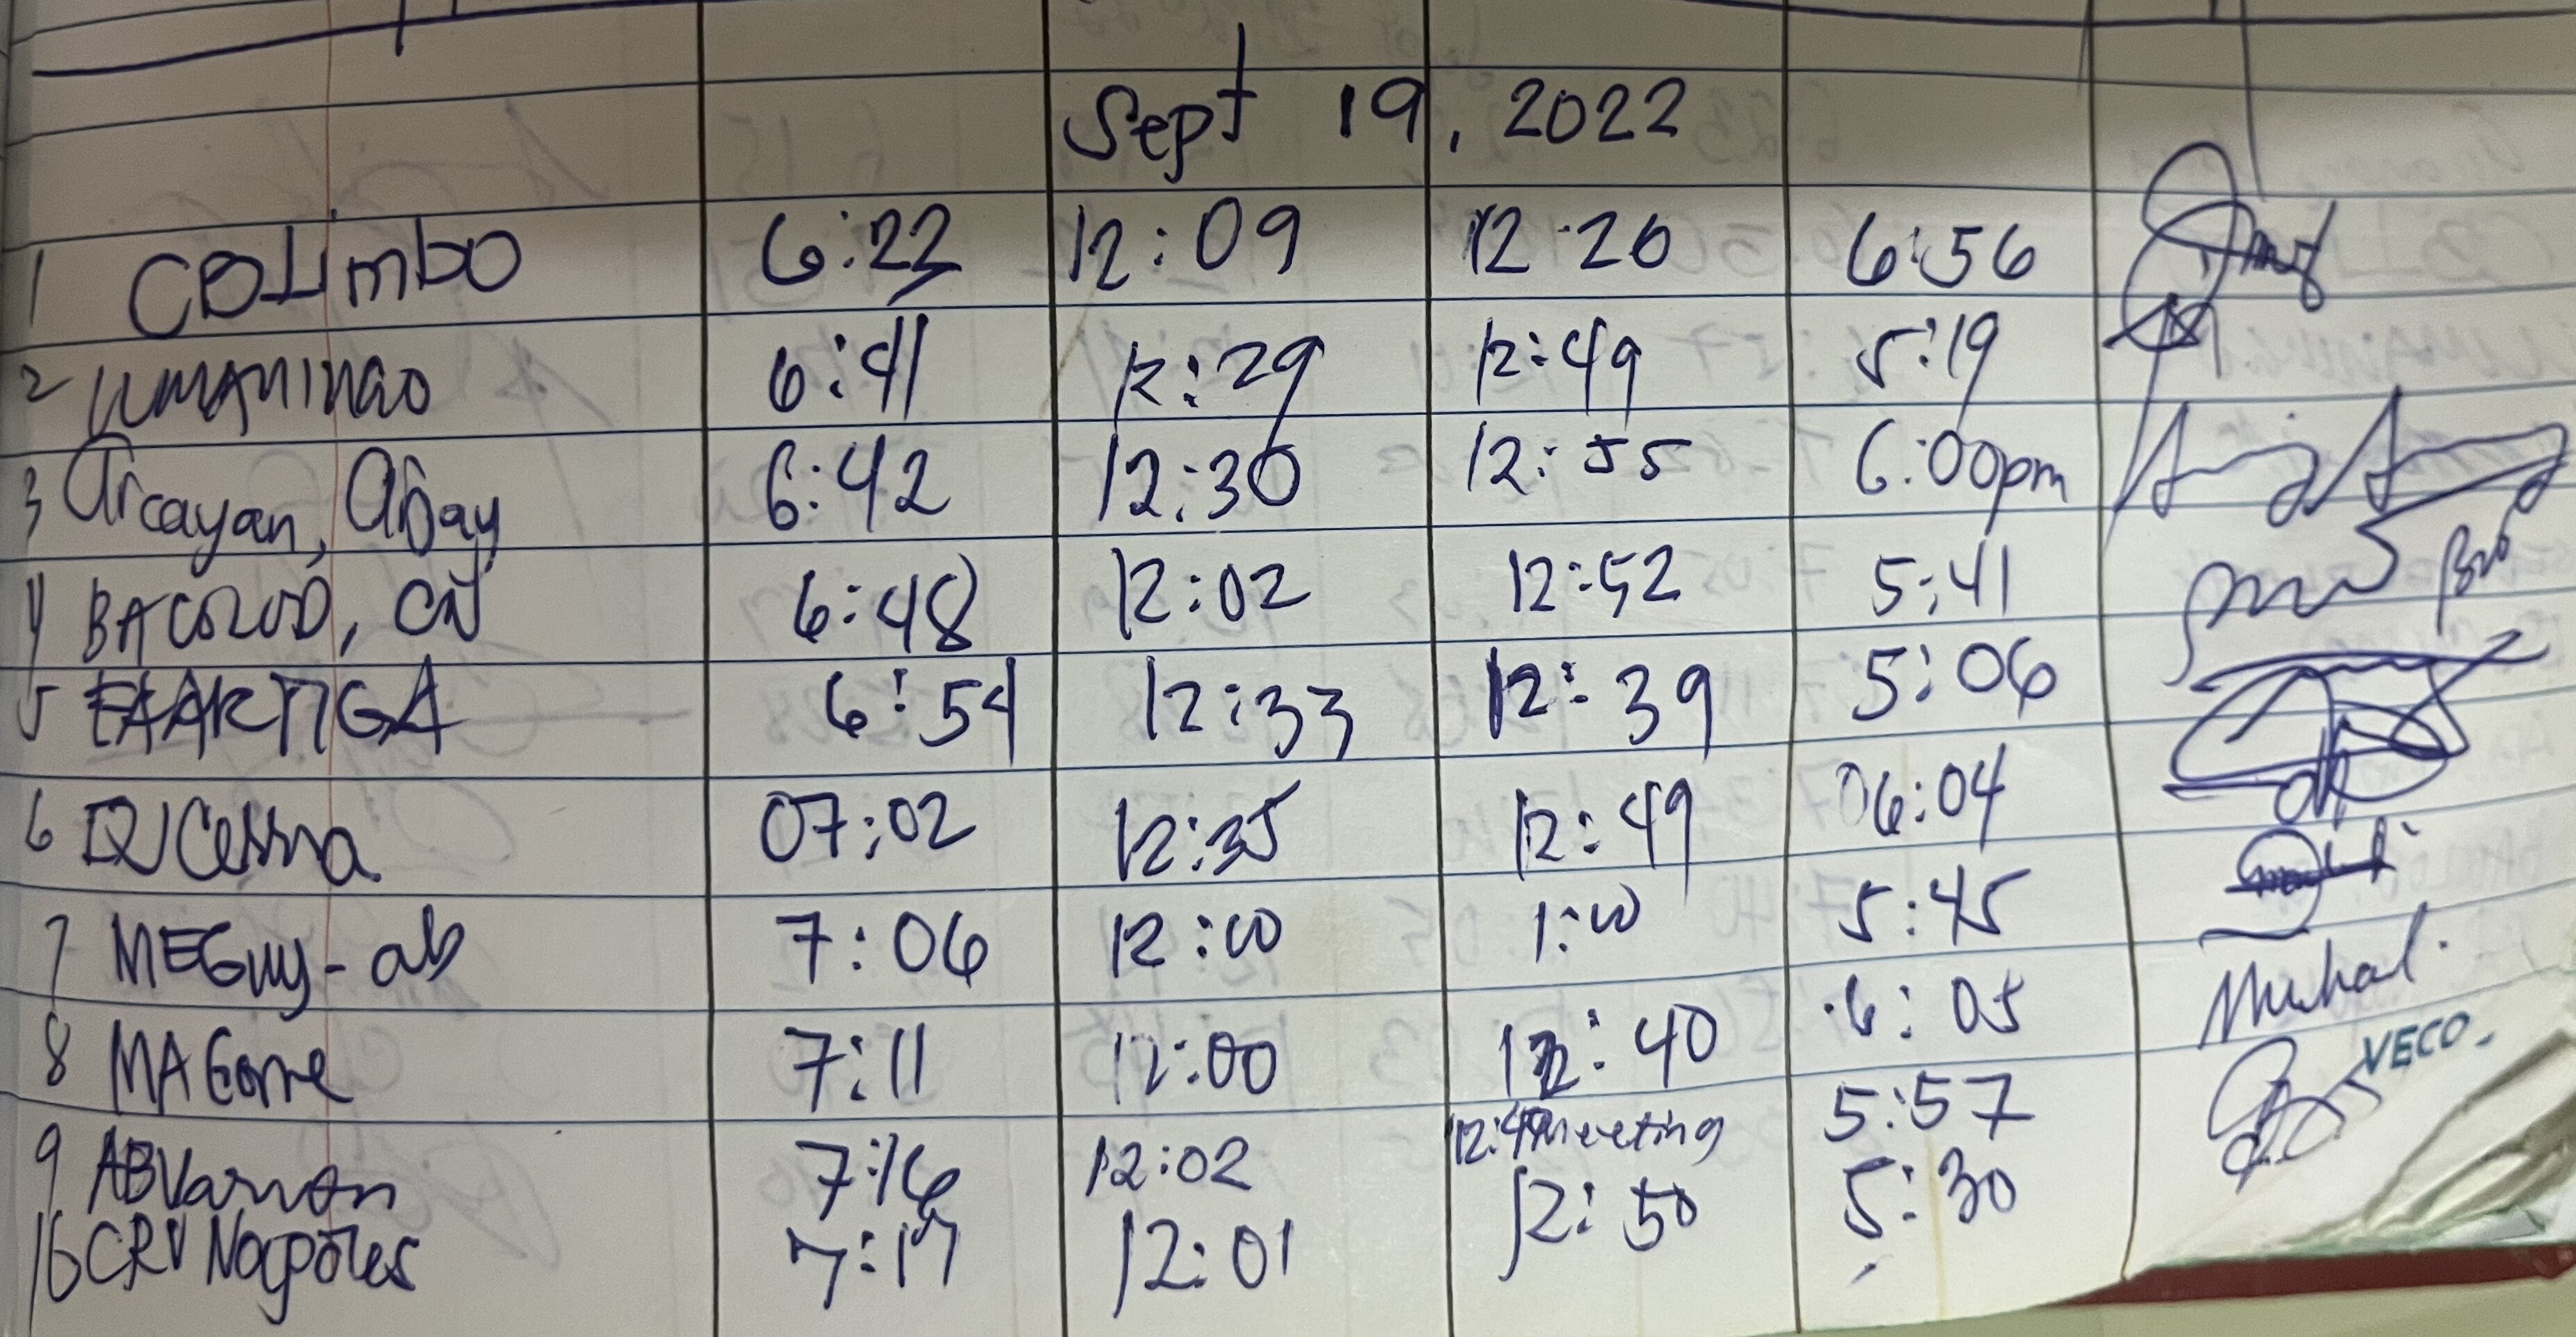 Sept 19, 2022
1 CDLimbo 6:22 12:09 12:20 6:56
2 6:41 12:29 12:49 5:19
3 Arcayan, Abay 6:42 12:30 12:55 6:00pm
4 BACOLOD, CN 6:48 12:02 12:52 5:41
5 EAARTIGA 6:54 12:33 12:39 5:06
6 07:02 12:35 12:49 06:04
7 MEGuy-ab 7:06 12:00 1:00 5:45
8 7:11 12:00 12:40 6:05
VECO
9 7:16 12:02 12:49 meeting 5:57
10 CRV Napoles 7:17 12:01 12:50 5:30